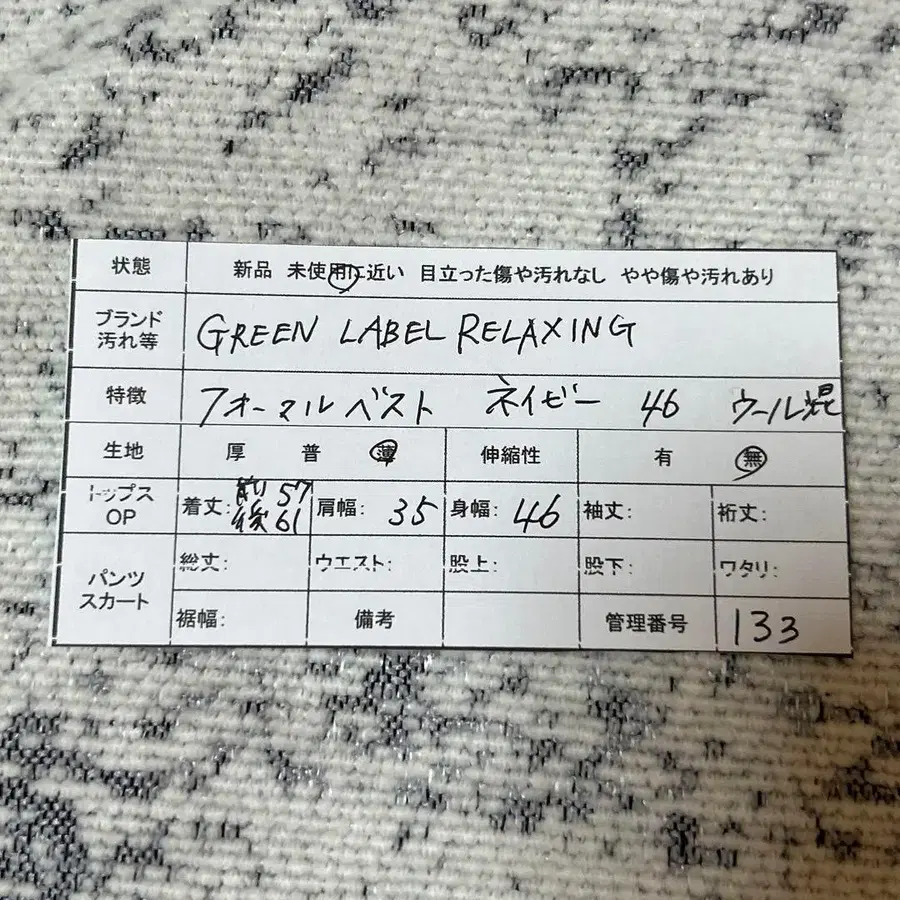 状態 新品 未使用に近い 目立った傷や汚れなし やや傷や汚れあり
ブランド
汚れ等 GREEN LABEL RELAXING
特徴 フォーマルベスト ネイビー 46 ウール混
生地 厚 普 薄 伸縮性 有 無
トップス
OP 着丈: 前 57 後 61 肩幅: 35 身幅: 46 袖丈: 裄丈:
パンツ
スカート 総丈: ウエスト: 股上: 股下: ワタリ:
裾幅: 備考 管理番号 133